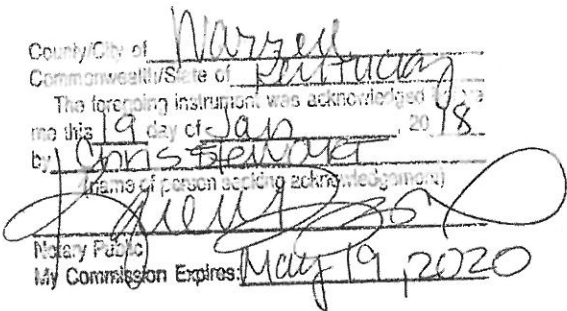 County/City of Warren
Commonwealth/State of Kentucky
The foregoing instrument was acknowledged before
me this 19 day of Jan, 2018
by Chris
(name of person seeking acknowledgement)
Notary Public
My Commission Expires: May 19, 2020